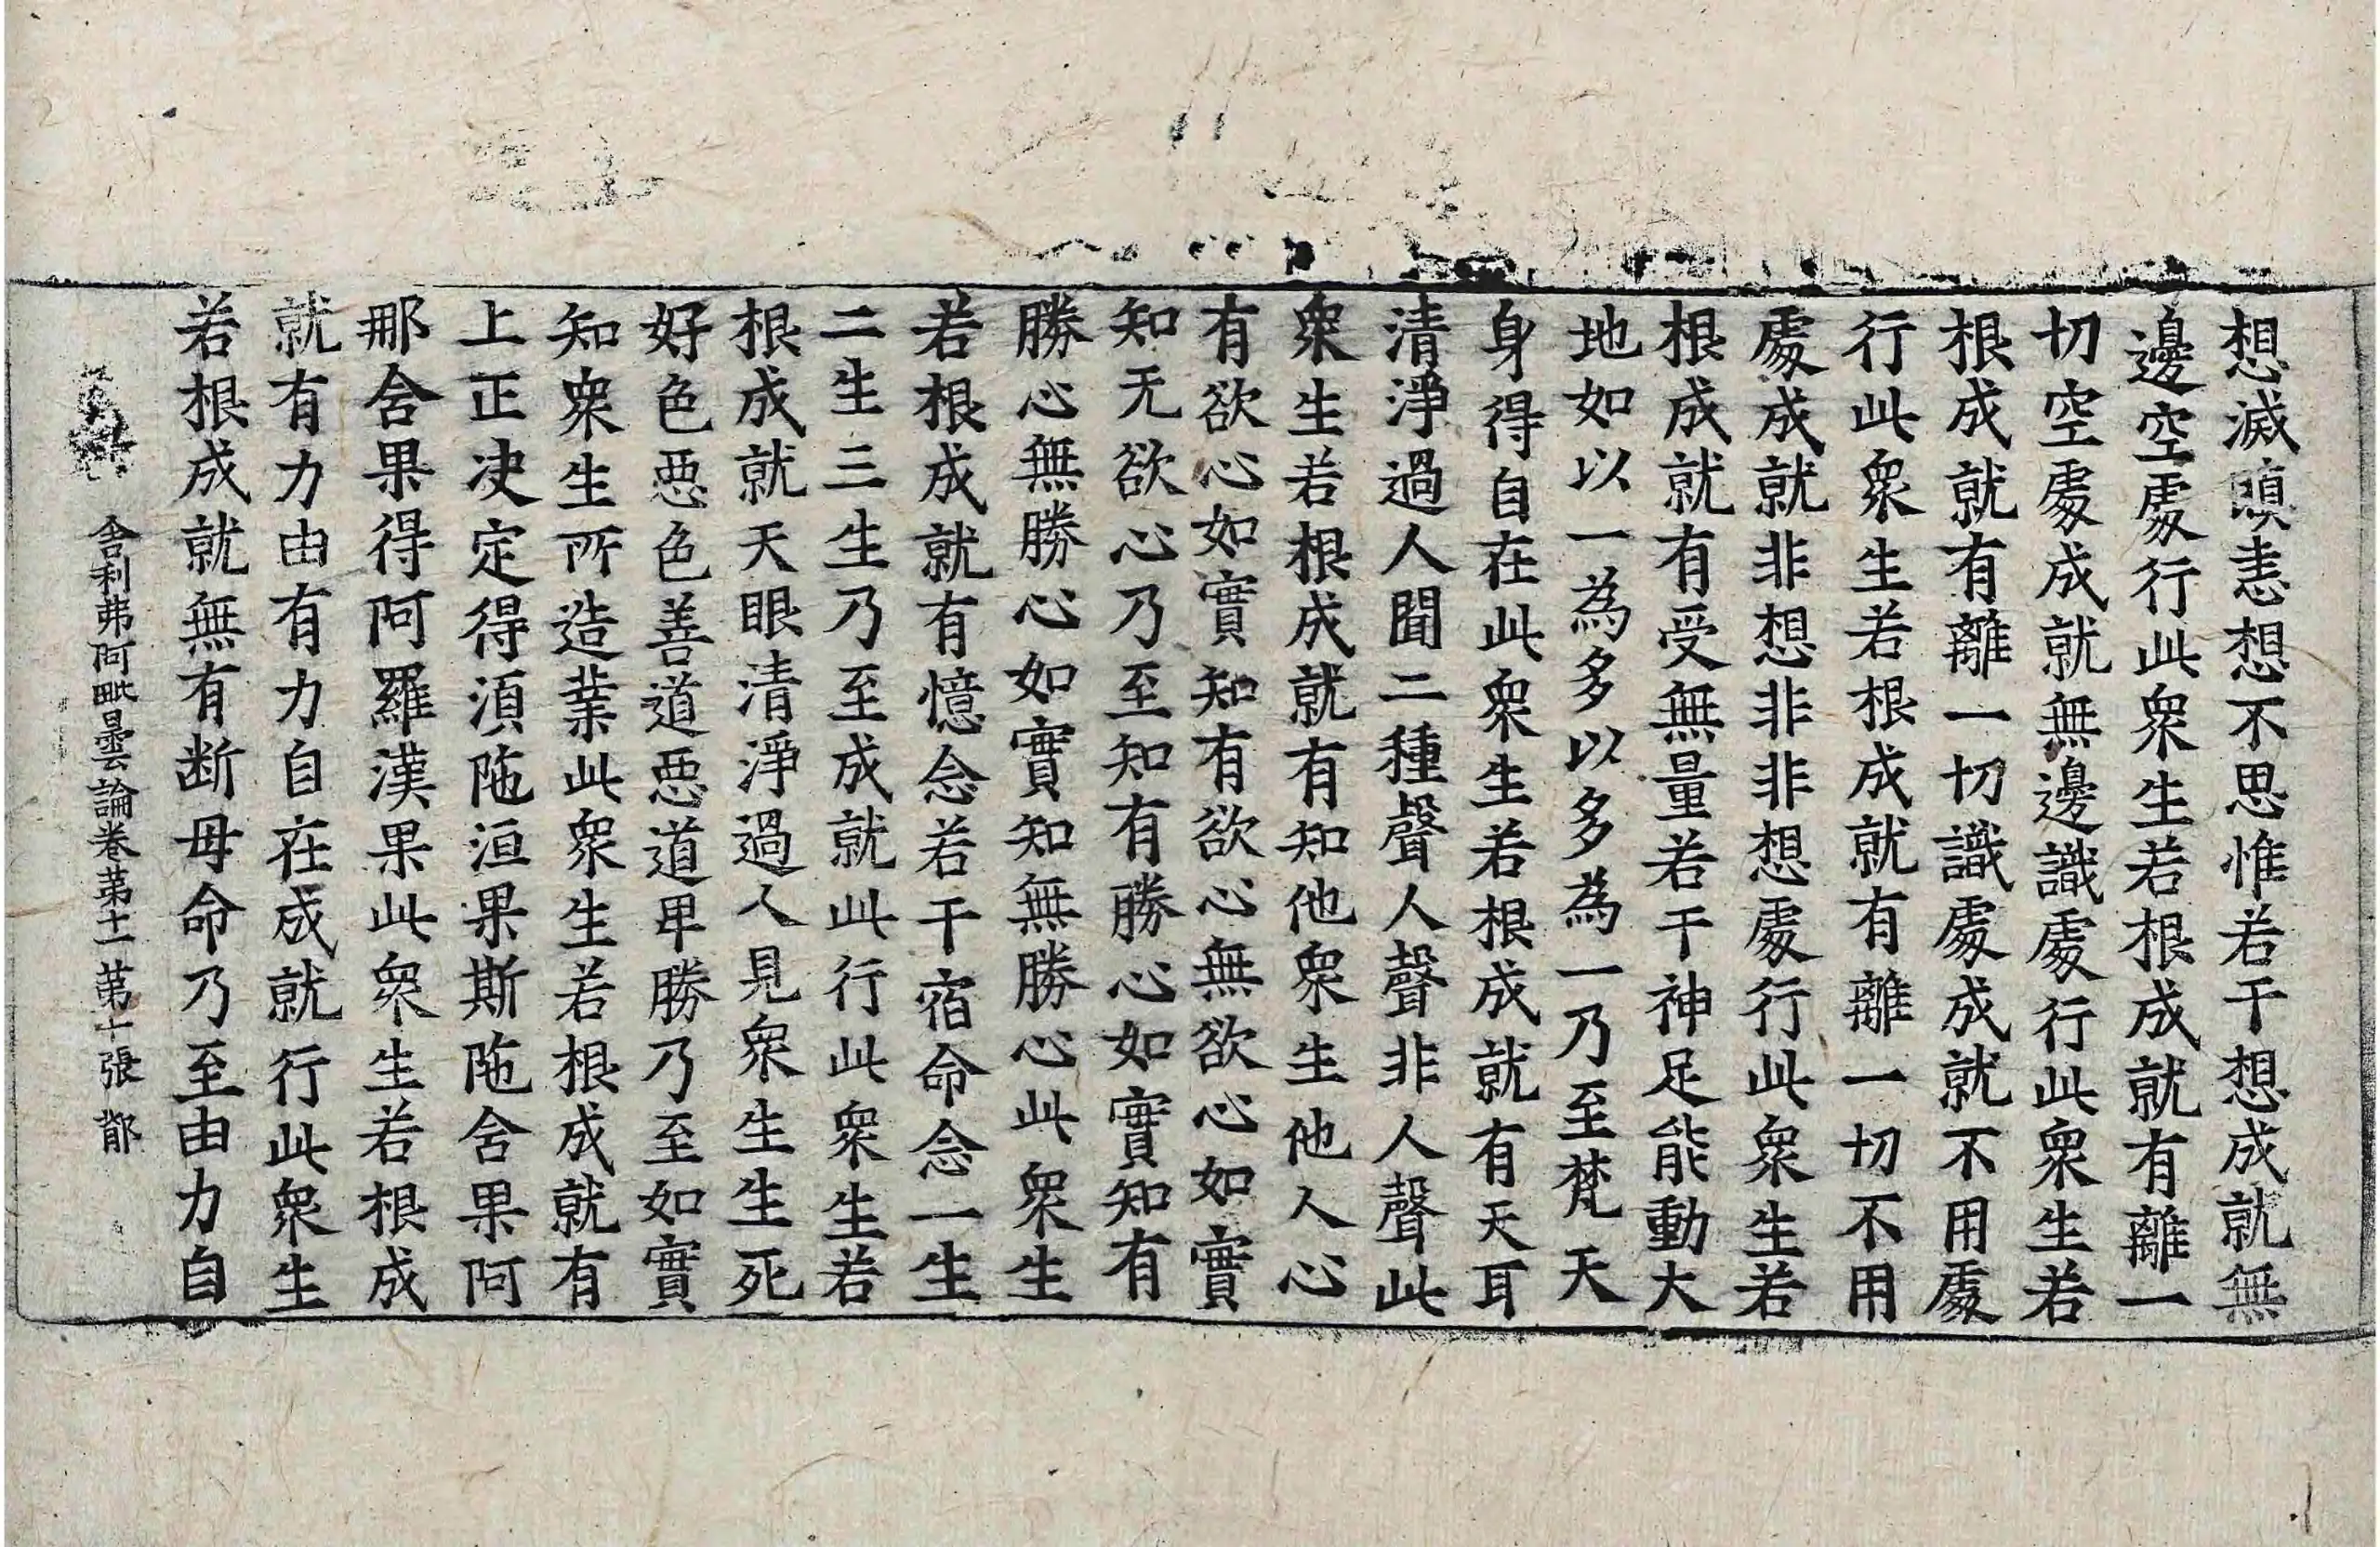 想滅瞋恚想不思惟若干想成就無
邊空處行此衆生若根成就有離一
切空處成就無邊識處行此衆生若
根成就有離一切識處成就不用處
行此衆生若根成就有離一切不用
處成就非想非非想處行此衆生若
根成就有受無量若干神足能動大
地如以一為多以多為一乃至梵天
身得自在此衆生若根成就有天耳
清淨過人聞二種聲人聲非人聲此
衆生若根成就有知他衆生他人心
有欲心如實知有欲心無欲心如實
知无欲心乃至知有勝心如實知有
勝心無勝心如實知無勝心此衆生
若根成就有憶念若干宿命念一生
二生三生乃至成就此行此衆生若
根成就天眼清淨過人見衆生生死
好色惡色善道惡道卑勝乃至如實
知衆生所造業此衆生若根成就有
上正决定得湏陁洹果斯陁含果阿
那含果得阿羅漢果此衆生若根成
就有力由有力自在成就行此衆生
若根成就無有断母命乃至由力自
舎利弗阿毗曇論卷苐十一苐十張 鄁